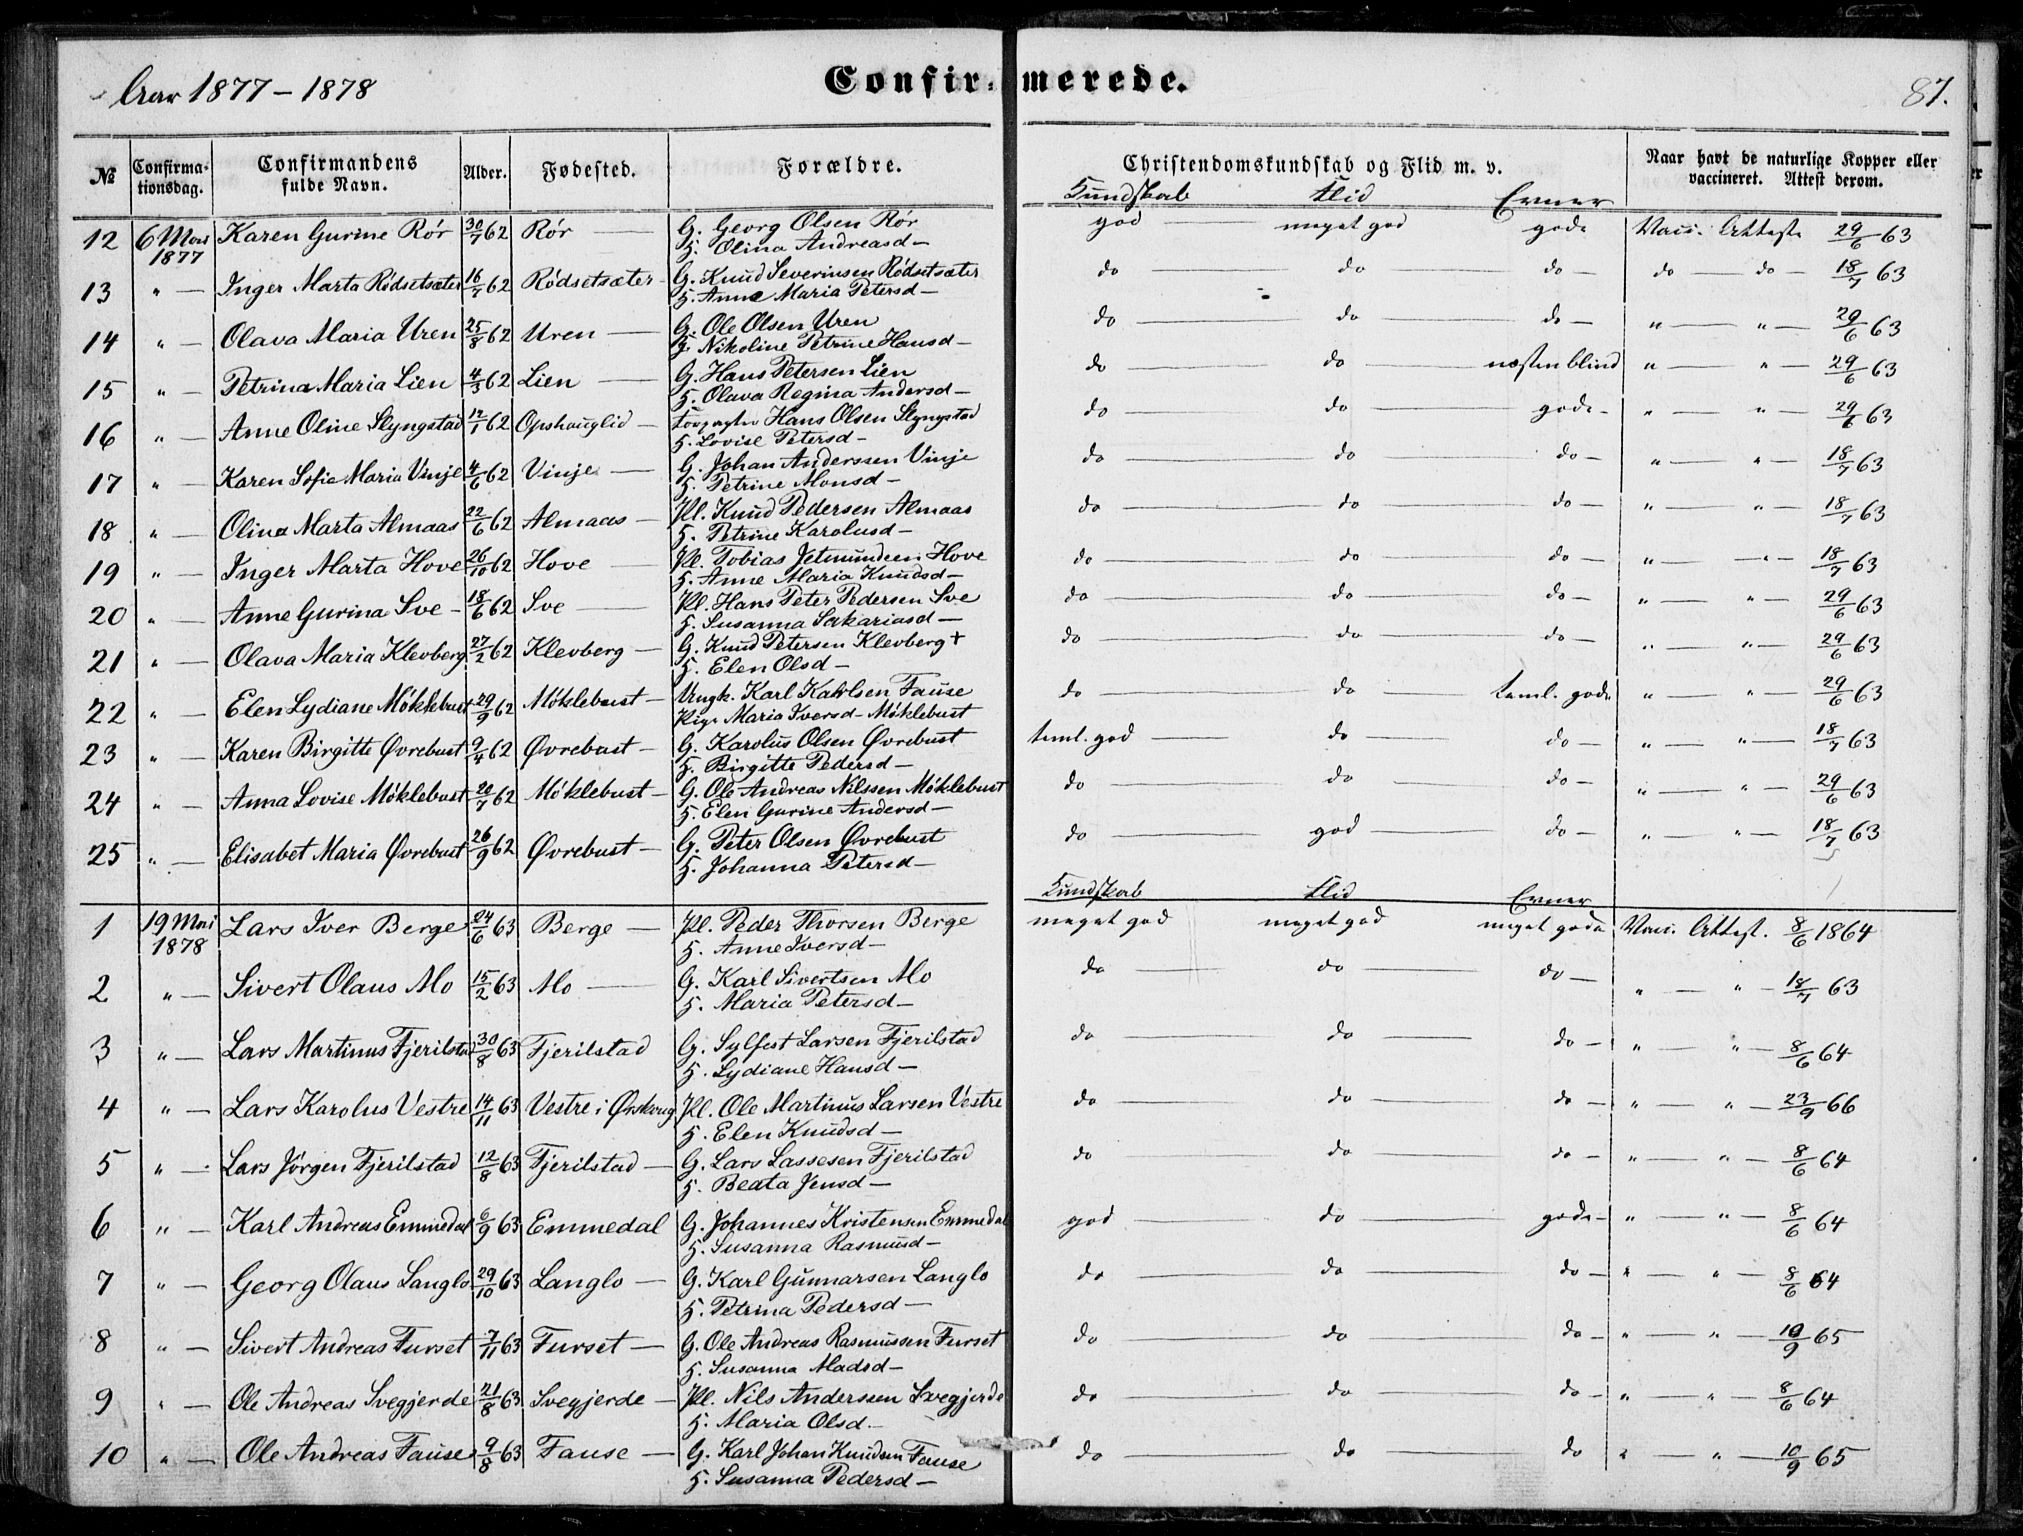 Aar 1877 - 1878 Confirmerede. 87.
№ Confirmationsdag. Confirmandens fulde Navn. Alder. Fødested. Forældre. Christendomskundskab og Flid m. v. Naar havt de naturlige Kopper eller vaccineret. Attest derom.
Kundskab Flid Evner
12 6 Mai 1877 Karen Gurine Rór 30/7 62 Rór — G. Georg Olsen Rór god meget god gode Vacc. Atteste 29/6 63
H. Olina Andreasd —
13 " — Inger Marta Ródsetsæter 16/7 62 Ródsetsæter - G. Knud Severinsen Ródsetsæter do — do — do — do — do — 18/7 63
H. Anne Maria Petersd —
14 " — Olava Maria Uren 25/8 62 Uren — G. Ole Olsen Uren do — do — do — " — " — 29/6 63
H. Nikoline Petrine Hansd —
15 " — Petrina Maria Lien 4/3 62 Lien — G. Hans Petersen Lien do — do — næsten blind " — " — 29/6 63
H. Olava Regina Andersd —
16 " — Anne Oline Slyngstad 12/1 62 Opshauglid — Hans Olsen Slyngstad do — do — gode - " — " — 29/6 63
H. Lovise Petersd —
17 " — Karen Sofie Maria Vinje 4/6 62 Vinje — G. Johan Anderssen Vinje do — do — do — " — " — 18/7 63
H. Petrine Monsd —
18 " — Olina Marta Almaas 22/6 62 Almaas — Pl. Knud Pedersen Almaas do — do — do — " — " — 18/7 63
H. Petrine Karolusd —
19 " — Inger Marta Hove 26/10 62 Hove — Pl. Tobias Jetmundsen Hove do — do — do — " — " — 18/7 63
H. Anne Maria Knudsd —
20 " — Anne Gurina Sve — 18/6 62 Sve — Pl. Hans Peter Pedersen Sve do — do — do — " — " — 29/6 63
H. Susanna Sakariasd —
21 " — Olava Maria Klevberg 27/2 62 Klevberg — G. Knud Petersen Klevberg + do — do — do — " — " — 29/6 63
H. Elen Olsd —
22 " — Elen Lydiane Móklebust 29/9 62 Móklebust — Ungk. Karl Karlsen Fause do — do — teml. gode " — " — 29/6 63
Pige Maria Iversd - Móklebust
23 " — Karen Birgitte Øvrebust 9/4 62 Øvrebust — G. Karolus Olsen Øvrebust teml. god — do — do — " — " — 18/7 63
H. Birgitte Pedersd —
24 " — Anna Lovise Móklebust 20/7 62 Móklebust — G. Ole Andreas Nilssen Móklebust do — do — do — " — " — 29/6 63
H. Elen Gurine Andersd —
25 " — Elisabet Maria Øvrebust 26/9 62 Øvrebust — G. Peter Olsen Øvrebust do — god — do — " — " — 18/7 63
H. Johanna Petersd —
Kundskab Flid Evner
1 19 Mai 1878 Lars Iver Berge 24/6 63 Berge — Pl. Peder Thorsen Berge meget god meget god meget gode Vacc. Attest. 8/6 1864
H. Anne Iversd —
2 " — Sivert Olaus Mo 15/2 63 Mo — G. Karl Sivertsen Mo do — do — do — " — " — 18/7 63
H. Maria Petersd —
3 " — Lars Martinus Fjerilstad 30/8 63 Fjerilstad G. Sylfest Larsen Fjerilstad do — do — do — " — " — 8/6 64
H. Lydiane Hansd —
4 " — Lars Karolus Vestre 14/11 63 Vestre i Ørskoug Pl. Ole Martinus Larsen Vestre do — do — do — " — " — 23/9 66
H. Elen Knudsd —
5 " — Lars Jórgen Fjerilstad 12/8 63 Fjerilstad — G. Lars Lassesen Fjerilstad do — do — do — " — " — 8/6 64
H. Beata Jensd —
6 " — Karl Andreas Emmedal 6/9 63 Emmedal G. Johannes Kristensen Emmedal god — do — gode — " — " — 8/6 64
H. Susanna Rasmusd —
7 " — Georg Olaus Langlo 29/10 63 Langlo — G. Karl Gunnarsen Langlo do — do — do — " — " — 8/6 64
H. Petrina Pedersd —
8 " — Sivert Andreas Furset 7/11 63 Furset — G. Ole Andreas Rasmussen Furset do — do — do — " — " — 10/9 65
H. Susanna Madsd —
9 " — Ole Andreas Svegjerde 21/8 63 Svegjerde — Pl. Nils Anderssen Svegjerde do — do — do — " — " — 8/6 64
H. Maria Olsd —
10 " — Ole Andreas Fause 9/8 63 Fause — G. Karl Johan Knudsen Fause do — do — do " — " — 10/9 65
H. Susanna Pedersd —